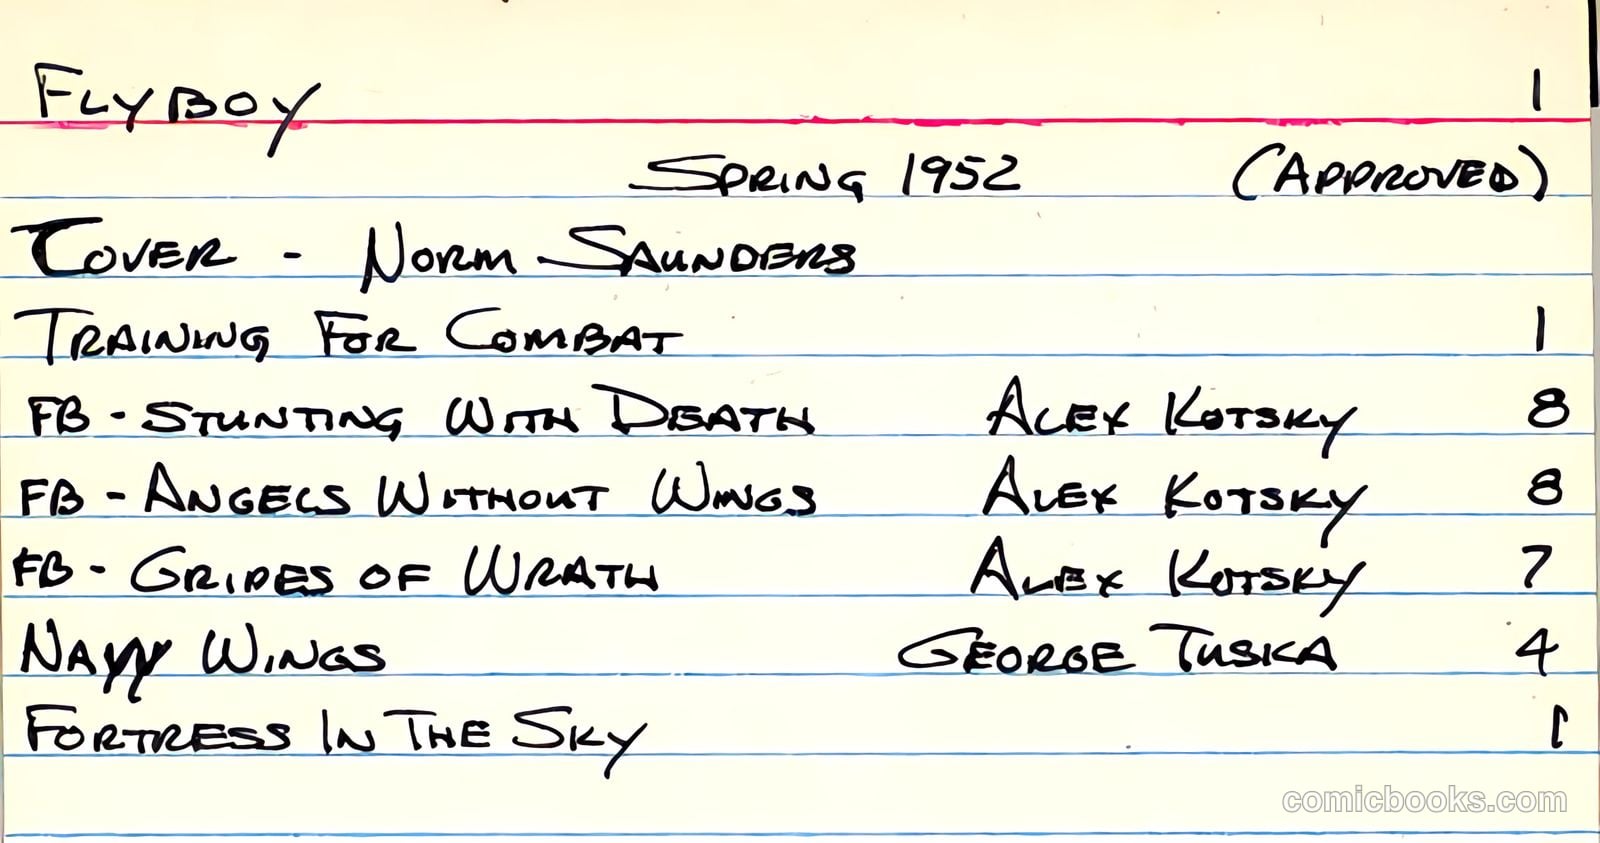 FLYBOY 1
SPRING 1952 (APPROVED)
COVER - NORM SAUNDERS
TRAINING FOR COMBAT 1
FB - STUNTING WITH DEATH ALEX KOTSKY 8
FB - ANGELS WITHOUT WINGS ALEX KOTSKY 8
FB - GRIPES OF WRATH ALEX KOTSKY 7
NAVY WINGS GEORGE TUSKA 4
FORTRESS IN THE SKY 1
comicbooks.com